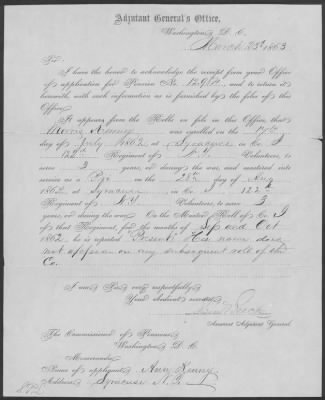 Adjutant General's Office,
Washington, D. C.
March 23d 1863
Sir:
I have the honor to acknowledge the receipt from your Office
of application for Pension No. and to return it
herewith, with such information as is furnished by the files of this
Office.
It appears from the Rolls on file in this Office, that
Kinny was enrolled on the 17th
day of July 1862 at Syracuse in Co. I
122d Regiment of N.Y. Volunteers, to
serve 3 years, or during the war, and mustered into
service as a Pvt on the 28th day of Aug
1862, at Syracuse in Co. I 122d
Regiment of N.Y. Volunteers, to serve 3
years, or during the war. On the Muster Roll of Co. I
of that Regiment, for the months of Sep and Oct
1862, he is reported "Present" His name does
not appear on any subsequent roll of the
Co.
I am Sir, very respectfully,
Your obedient servant,
Assistant Adjutant General.
The Commissioner of Pensions,
Washington, D. C.
Memoranda:
Name of applicant, Kinny
Address, Syracuse N.Y.